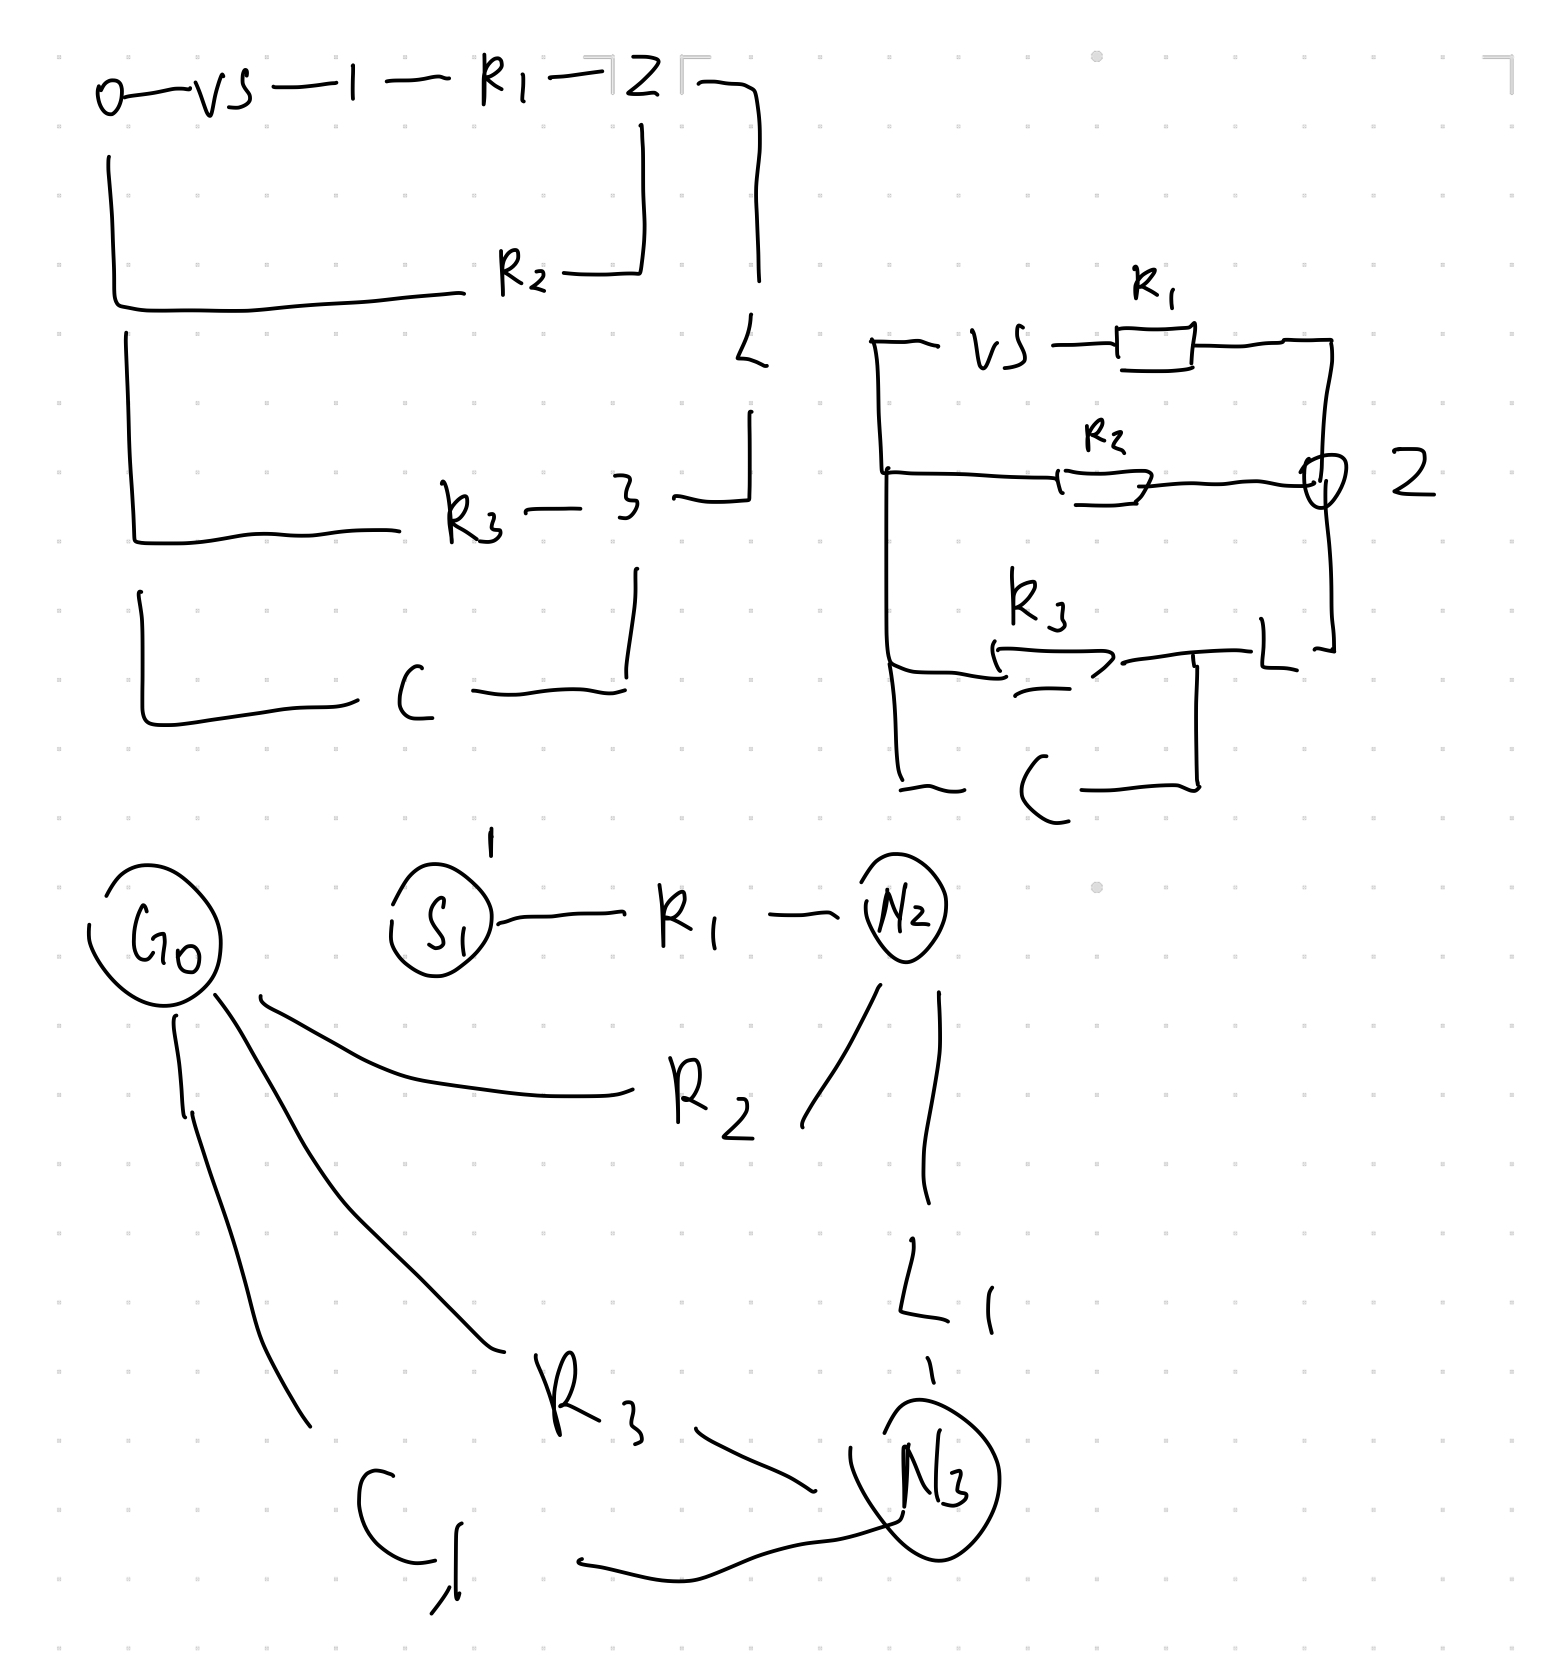 0 VS 1 R1 2
R2
L
R3 3
C
R1
VS
R2
2
R3
L
C
1
G0 S1 R1 N2
R2
L1
R3
N3
C1